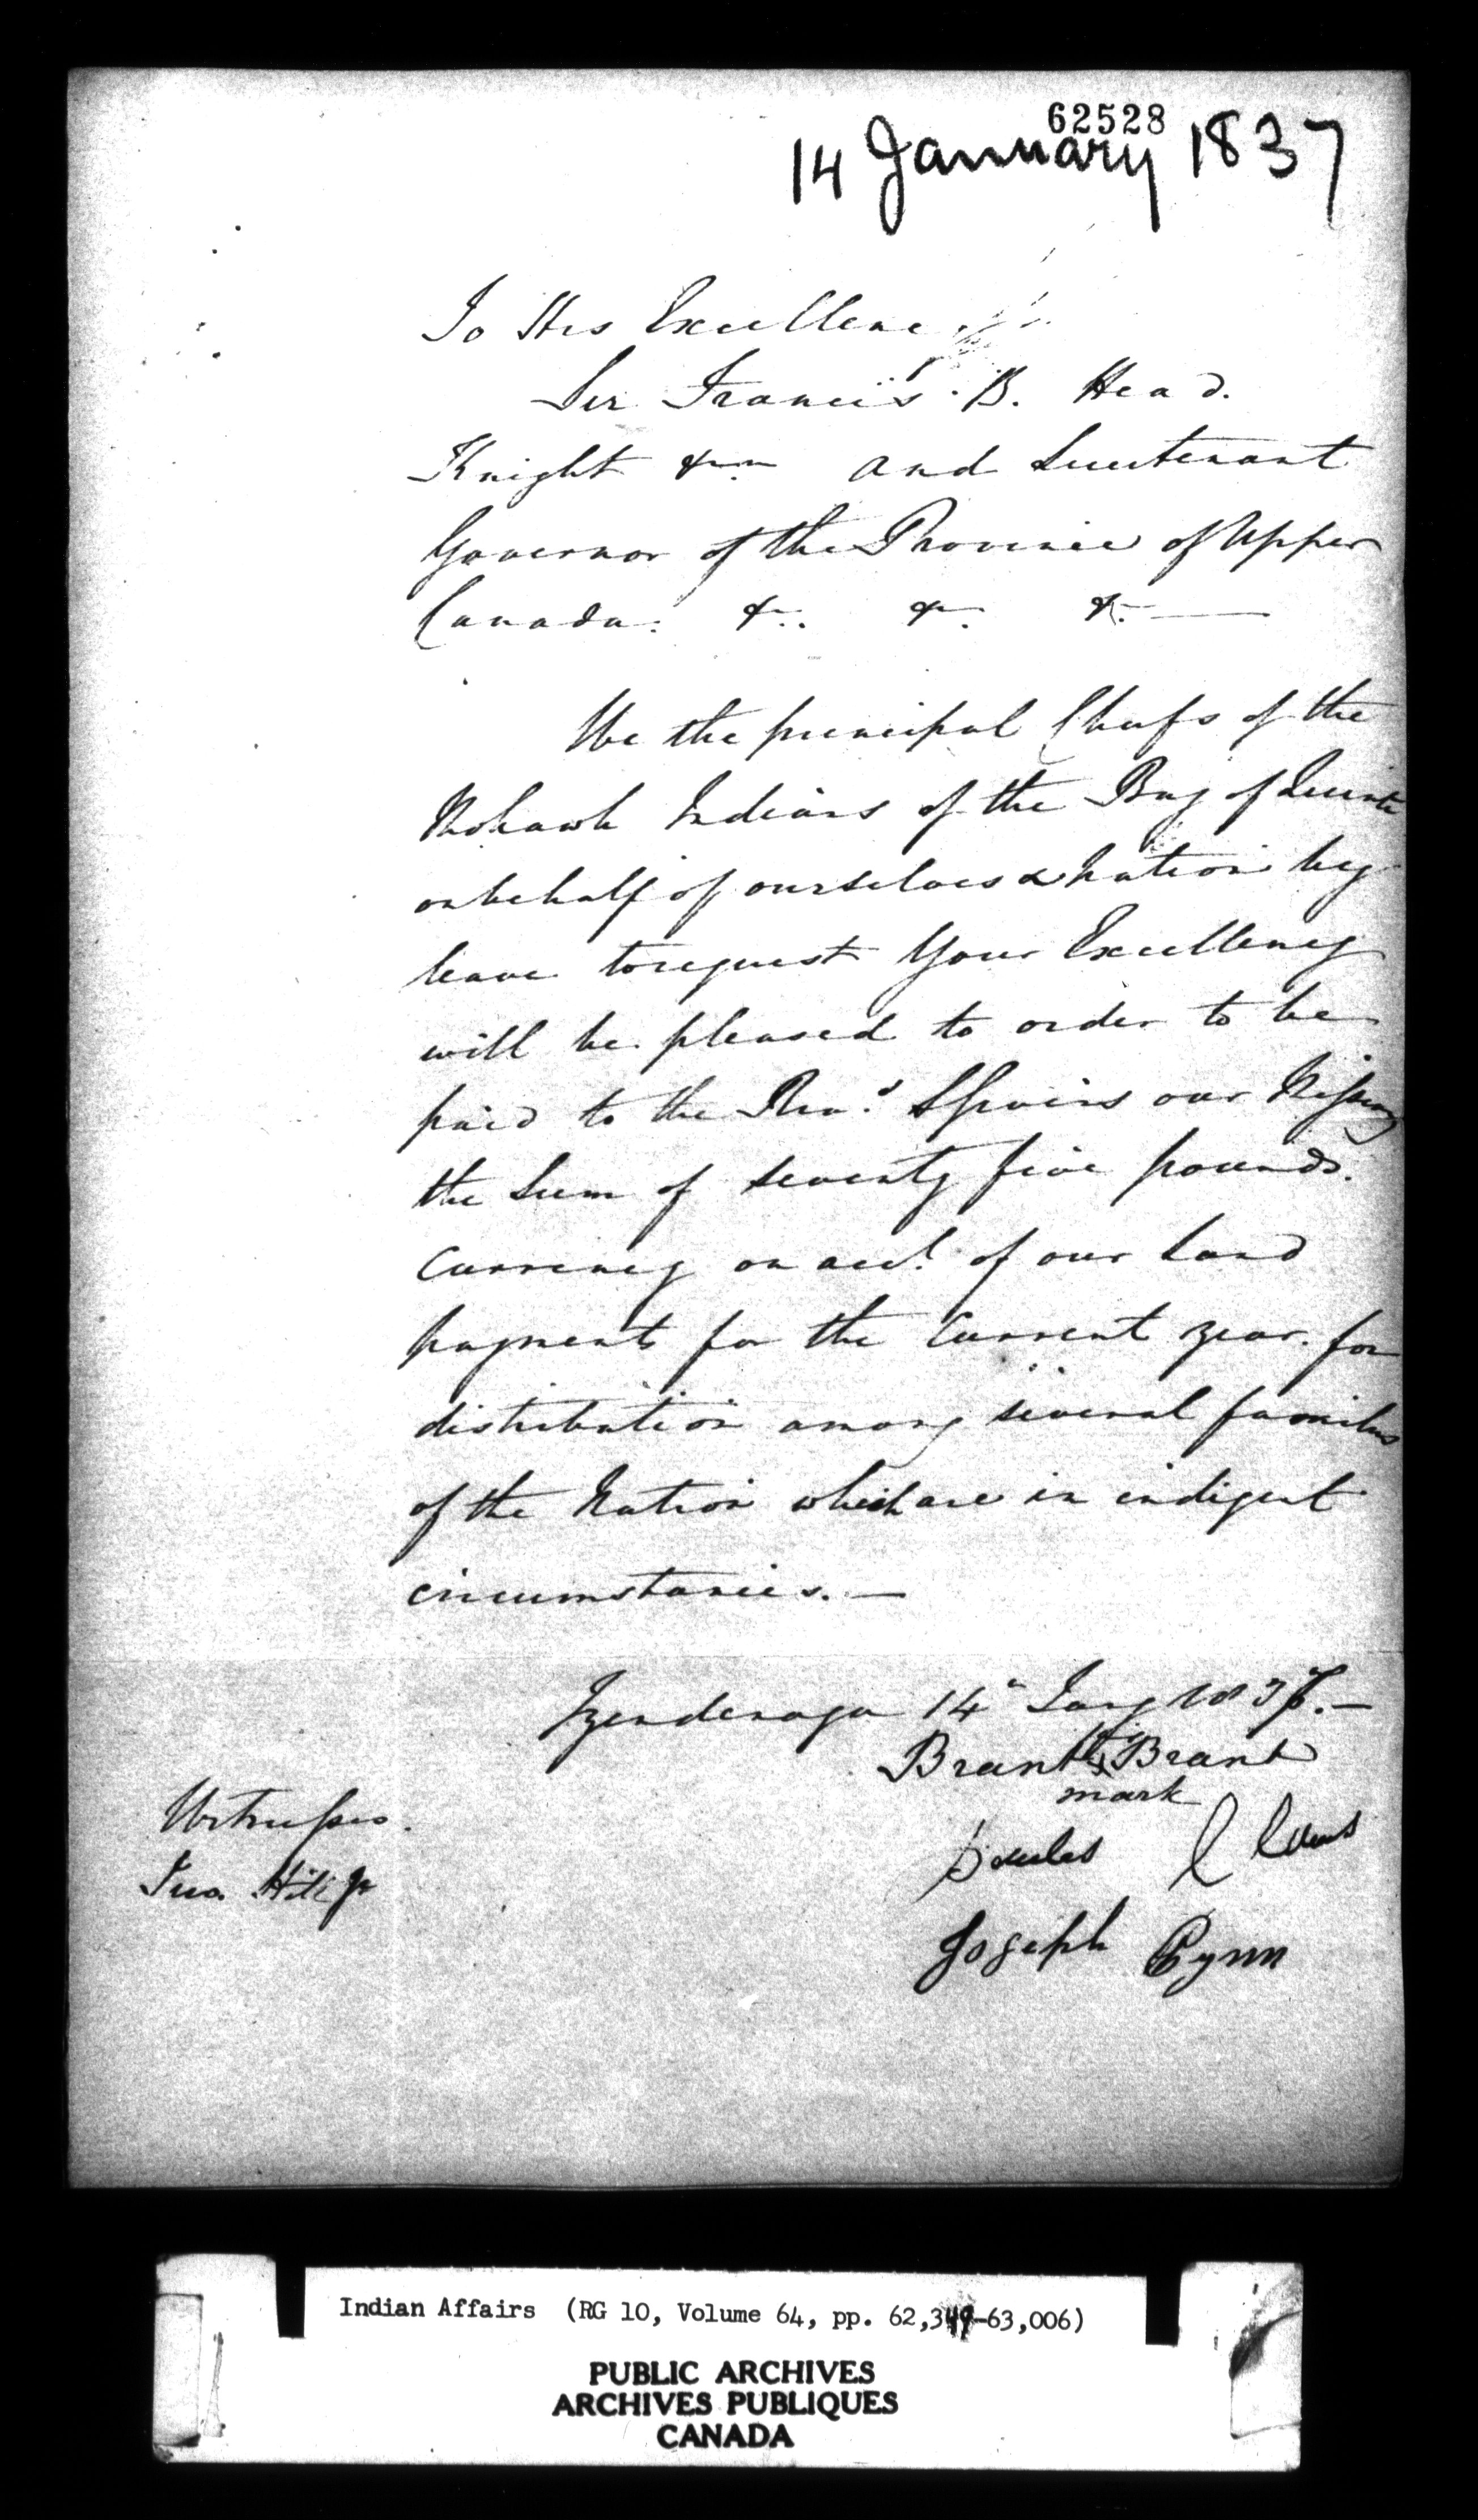 62528
14 January 1837
To His Excellenc
Sir Francis B. Head.
Knight &c. and Lieutenant
Governor of the Province of Upper
Canada. &c. &c. &c. —
We the principal Chiefs of the
Mohawk Indians of the Bay of Quinte
on behalf of ourselves & Nation beg
leave to request Your Excellency
will be pleased to order to be
paid to the Revd. our Missiony
the Sum of Seventy five pounds.
Currency on acct. of our Land
payments for the Current year. for
distribution among several families
of the Nation which are in indigent
circumstances. —
Tyendenaga 14" Jany 1837. —
Brant his x Brant
mark
Witnesses.
Jno. Hill Jr
Joseph Pynn
Indian Affairs (RG 10, Volume 64, pp. 62,349-63,006)
PUBLIC ARCHIVES
ARCHIVES PUBLIQUES
CANADA